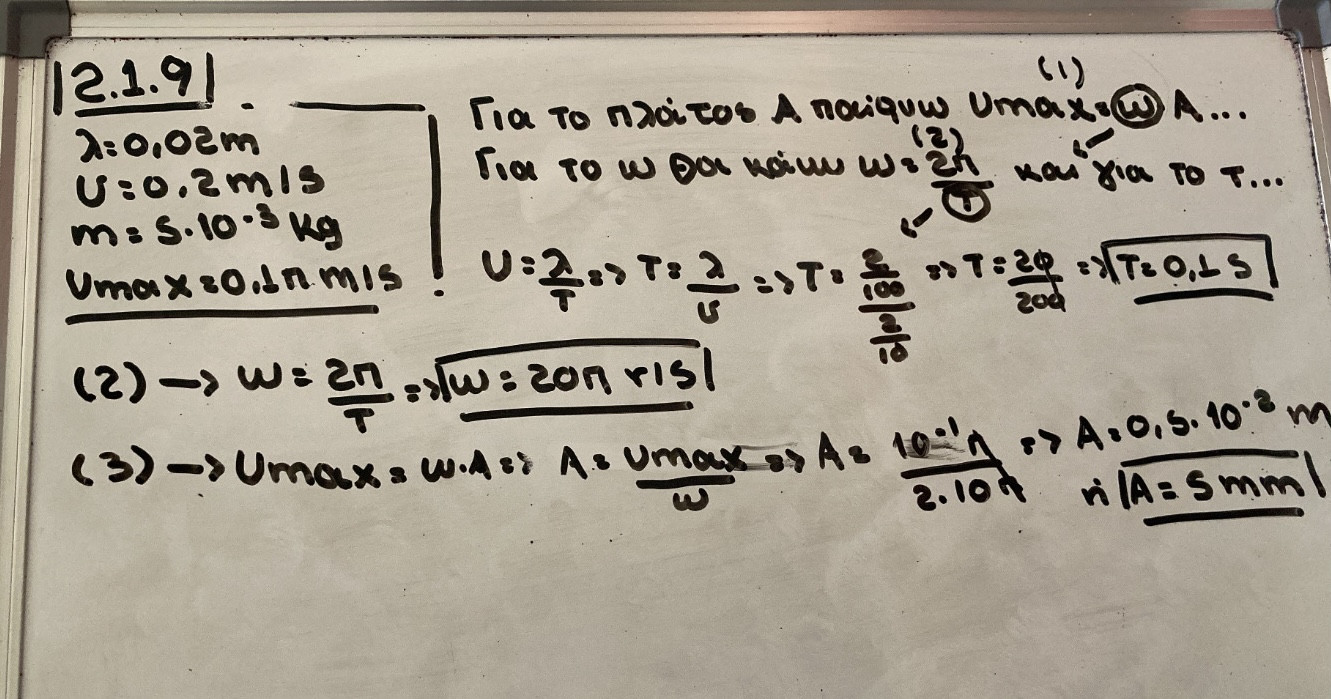 2.1.9
λ=0,02m
υ=0,2m/s
m=5·10⁻³ kg
Umax=0,1π m/s
Για το πλάτος A παίρνω Umax=ω A... (1)
Για το ω θα κάνω ω=2π/T (2) και για το T...
υ=λ/T => T=λ/υ => T=2/100/2/10 => T=20/200 => T=0,1s
(2) → ω=2π/T => ω=20π r/s
(3) → Umax=ω·A => A=Umax/ω => A=10⁻¹π/2·10π => A=0,5·10⁻² m
ή A=5mm